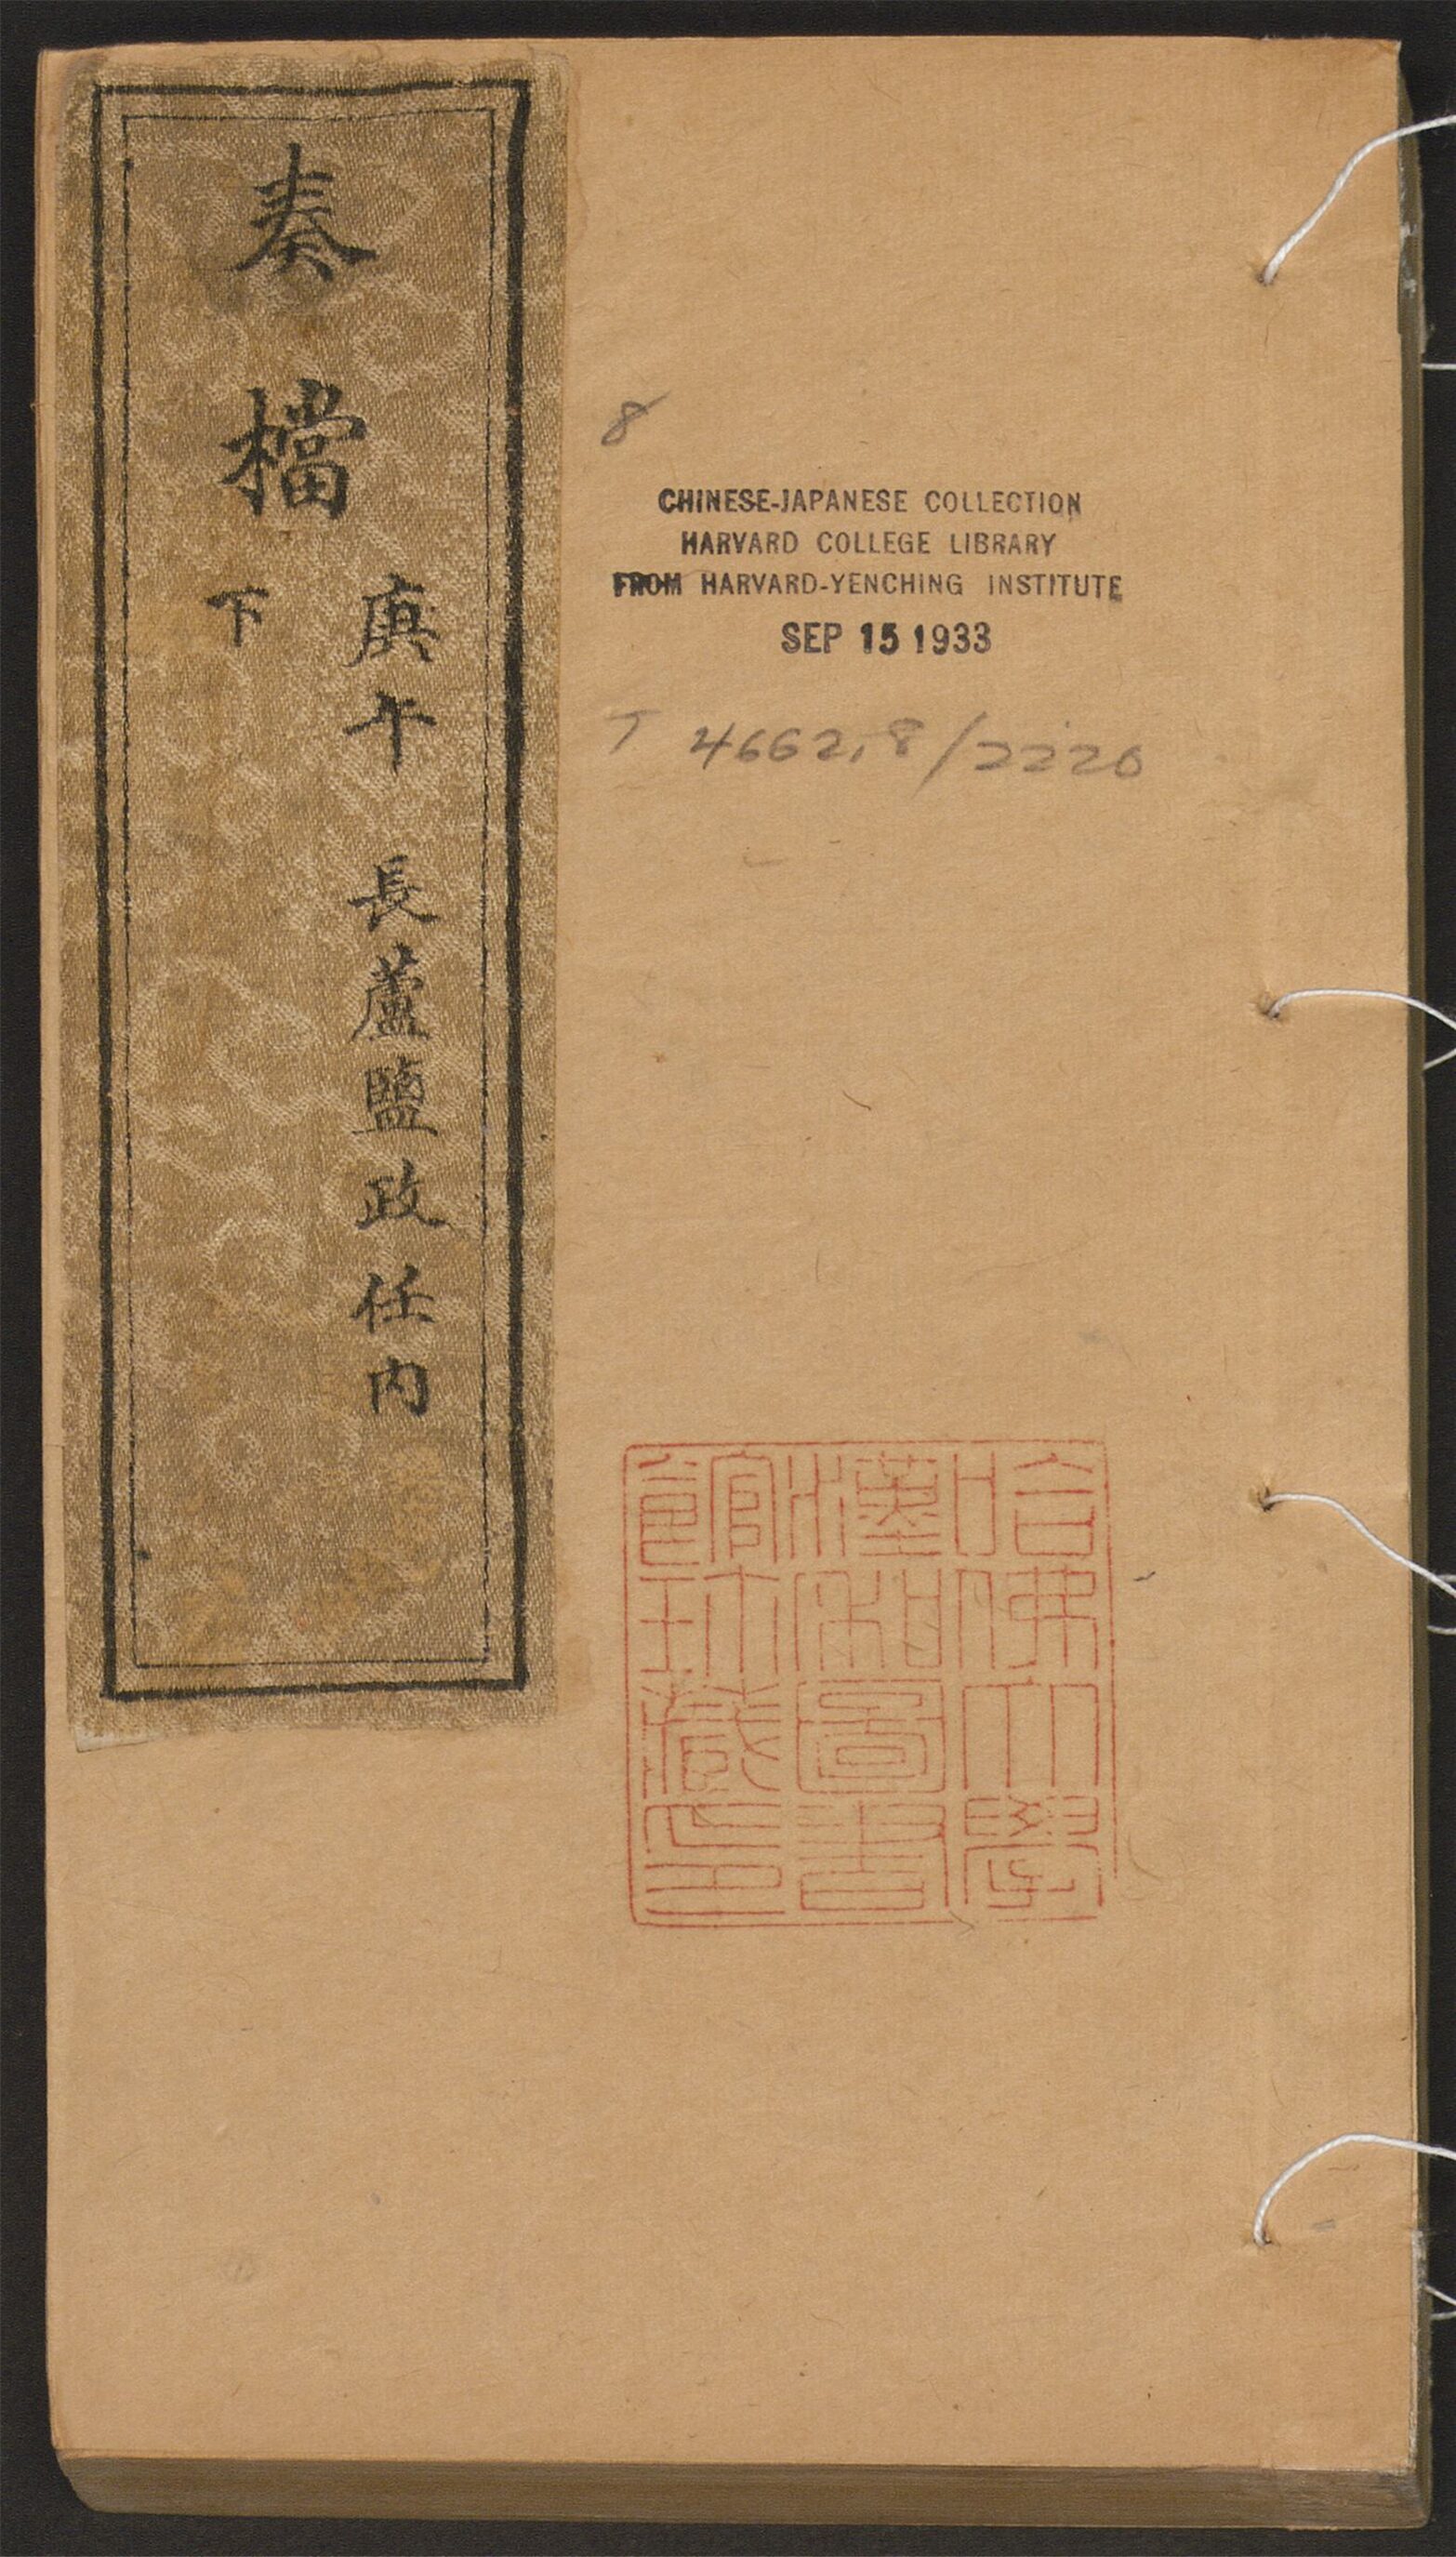 奏檔
庚午 長蘆鹽政任內
下
8
CHINESE-JAPANESE COLLECTION
HARVARD COLLEGE LIBRARY
FROM HARVARD-YENCHING INSTITUTE
SEP 15 1933
T 4662.8/2220
哈佛大學
漢和圖書
館珍藏印